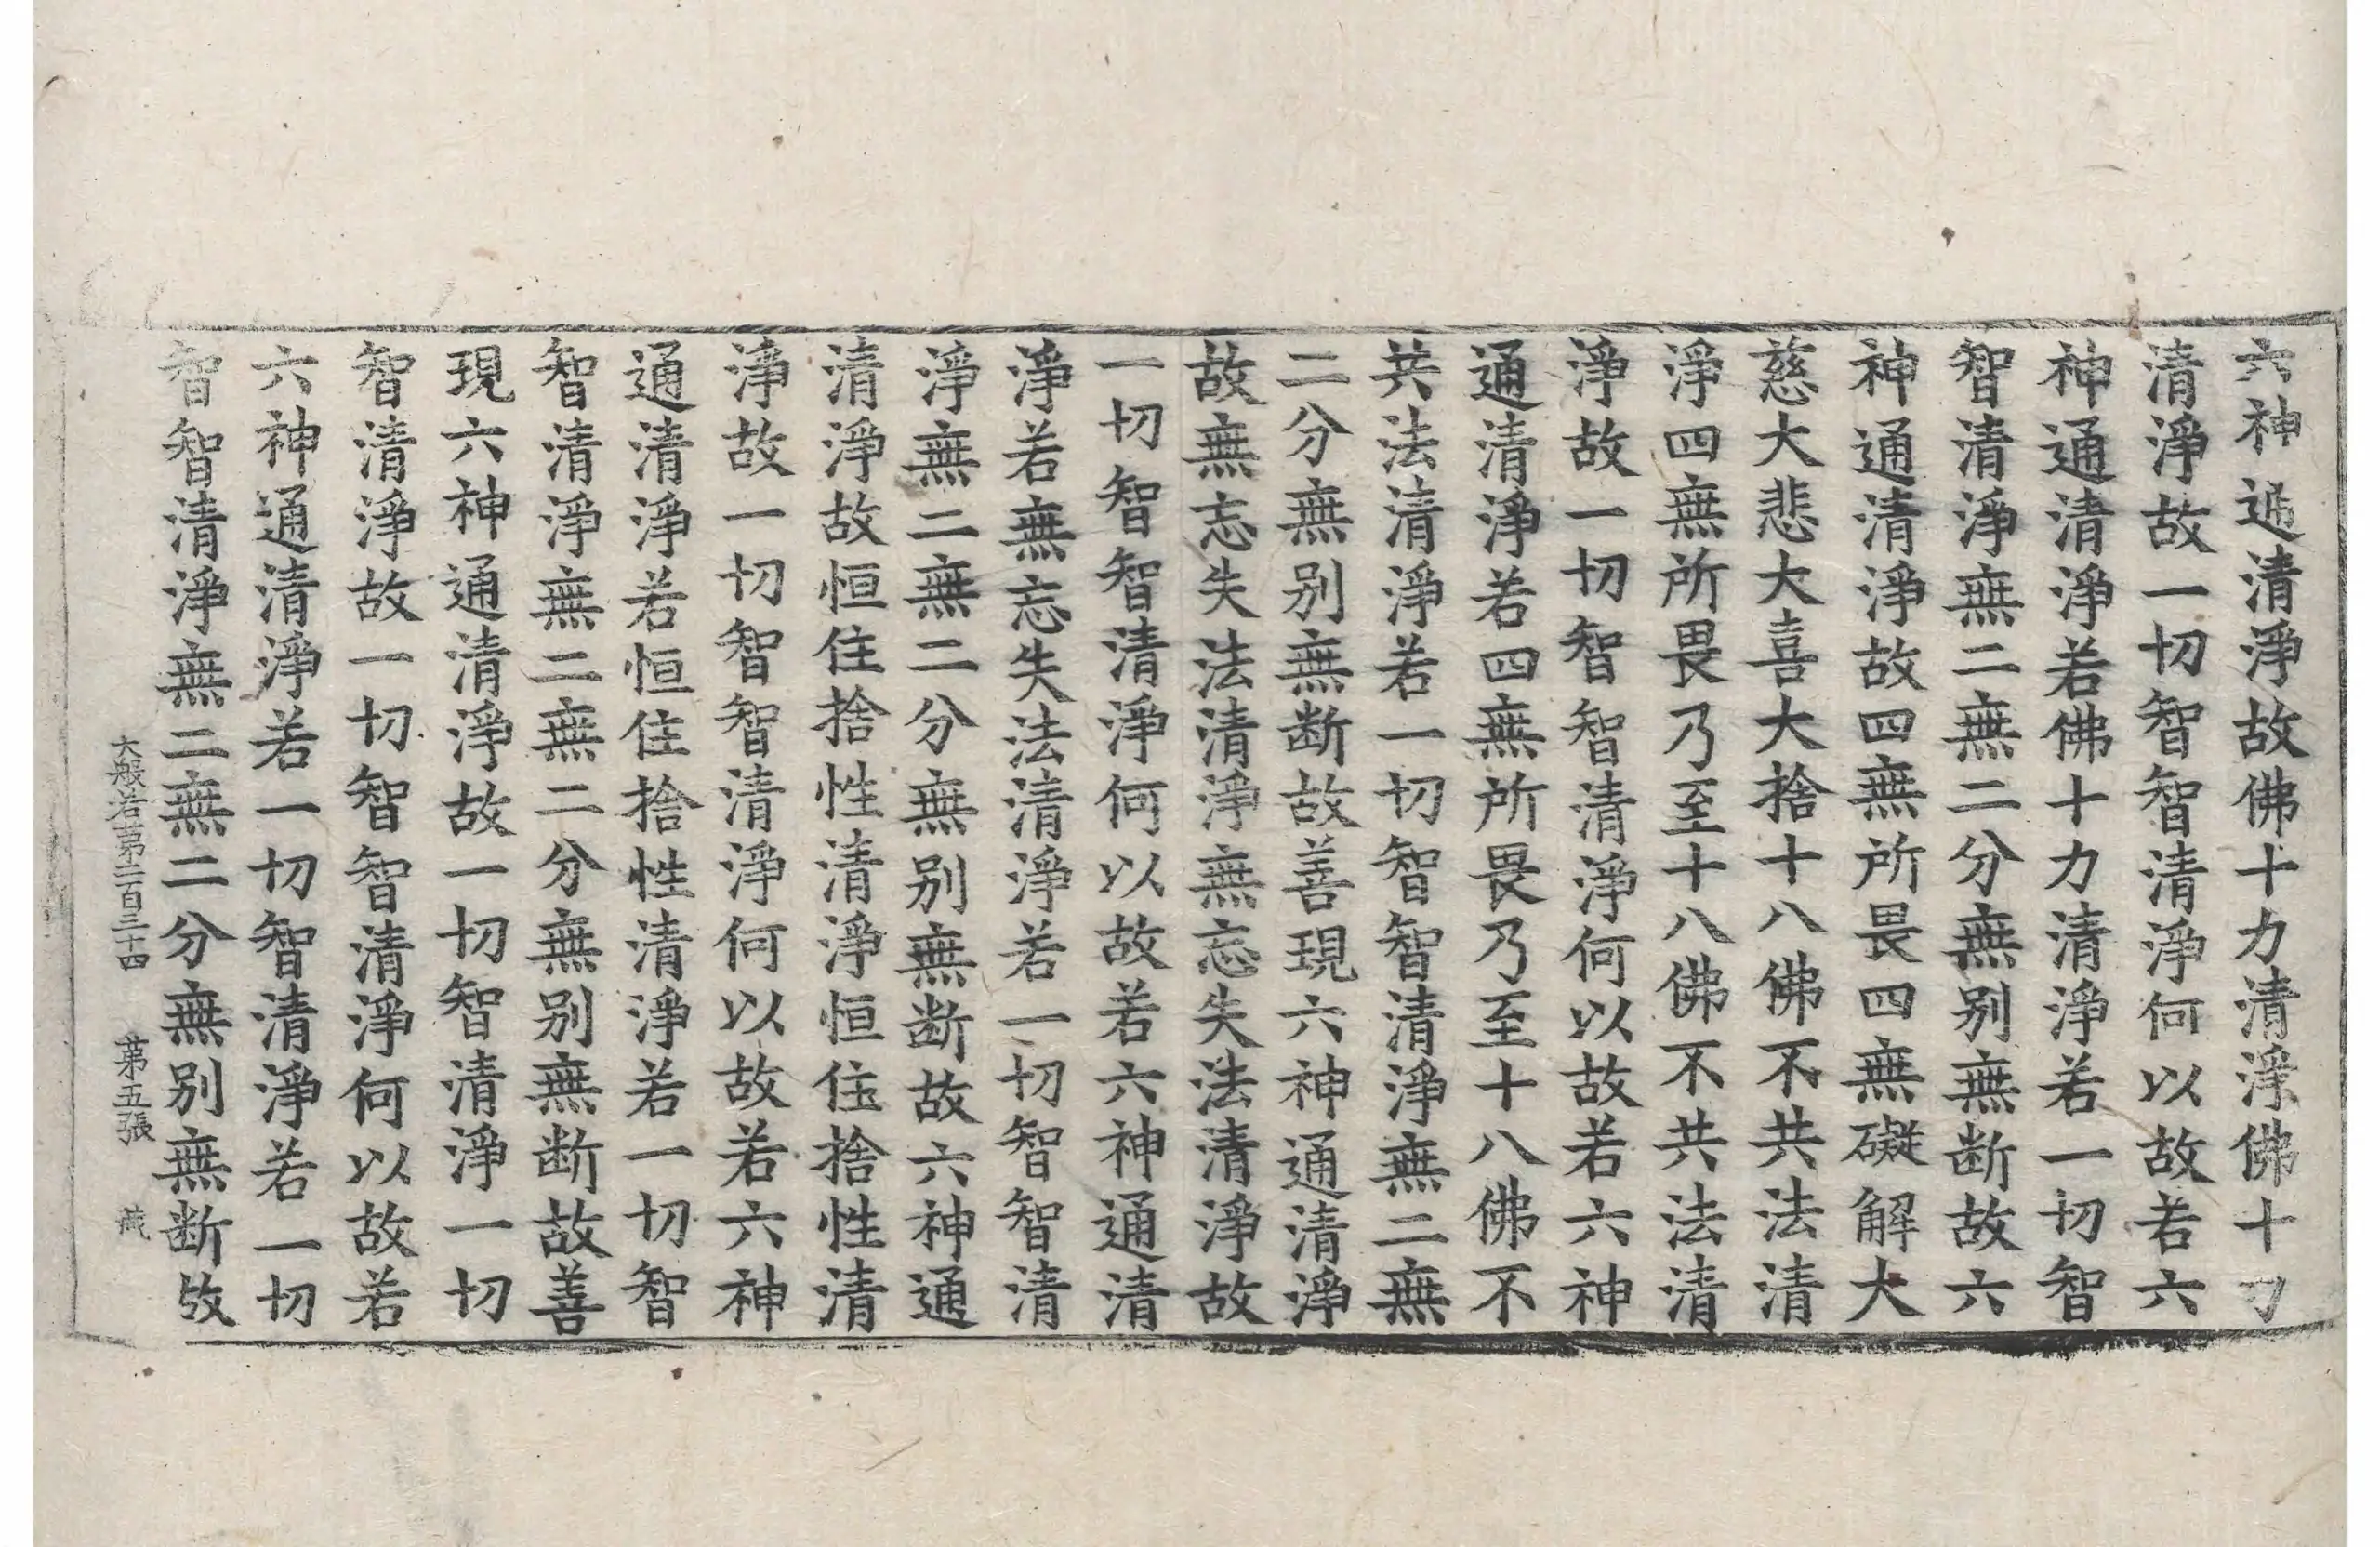 六神通清淨故佛十力清淨佛十力
清淨故一切智智清淨何以故若六
神通清淨若佛十力清淨若一切智
智清淨無二無二分無別無断故六
神通清淨故四無所畏四無礙解大
慈大悲大喜大捨十八佛不共法清
淨四無所畏乃至十八佛不共法清
淨故一切智智清淨何以故若六神
通清淨若四無所畏乃至十八佛不
共法清淨若一切智智清淨無二無
二分無別無断故善現六神通清淨
故無忘失法清淨無忘失法清淨故
一切智智清淨何以故若六神通清
淨若無忘失法清淨若一切智智清
淨無二無二分無別無断故六神通
清淨故恒住捨性清淨恒住捨性清
淨故一切智智清淨何以故若六神
通清淨若恒住捨性清淨若一切智
智清淨無二無二分無別無断故善
現六神通清淨故一切智清淨一切
智清淨故一切智智清淨何以故若
六神通清淨若一切智清淨若一切
智智清淨無二無二分無別無断故
大般若第二百三十四 第五張 藏